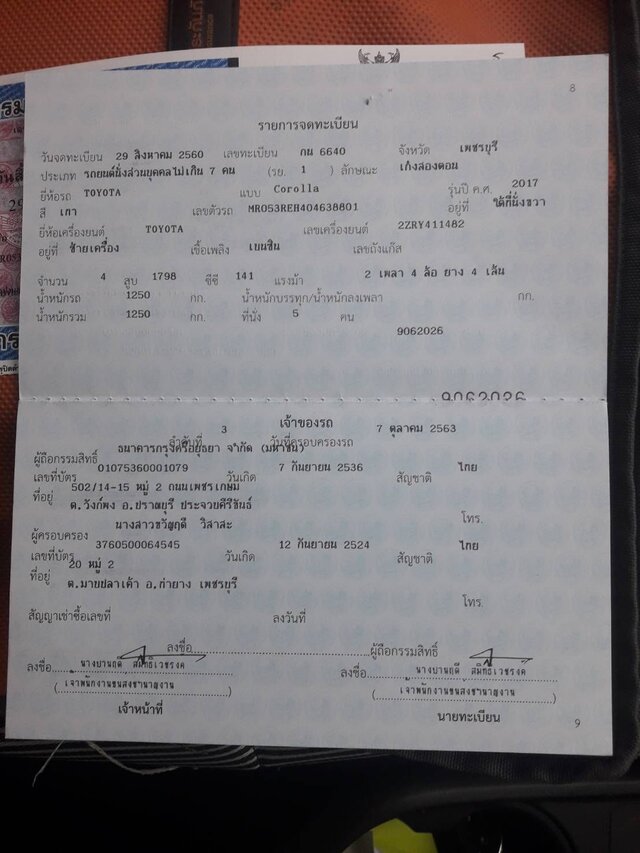 8
รายการจดทะเบียน
วันจดทะเบียน 29 สิงหาคม 2560 เลขทะเบียน กน 6640 จังหวัด เพชรบุรี
ประเภท รถยนต์นั่งส่วนบุคคลไม่เกิน 7 คน (รย. 1 ) ลักษณะ เก๋งสองตอน
ยี่ห้อรถ TOYOTA แบบ Corolla รุ่นปี ค.ศ. 2017
สี เทา เลขตัวรถ MR053REH404638801 อยู่ที่ ใต้ที่นั่งขวา
ยี่ห้อเครื่องยนต์ TOYOTA เลขเครื่องยนต์ 2ZRY411482
อยู่ที่ ซ้ายเครื่อง เชื้อเพลิง เบนซิน เลขถังแก๊ส
จำนวน 4 สูบ 1798 ซีซี 141 แรงม้า 2 เพลา 4 ล้อ ยาง 4 เส้น
น้ำหนักรถ 1250 กก. น้ำหนักบรรทุก/น้ำหนักลงเพลา กก.
น้ำหนักรวม 1250 กก. ที่นั่ง 5 คน
9062026
9062026
เจ้าของรถ
ลำดับที่ 3 วันที่ครอบครองรถ 7 ตุลาคม 2563
ผู้ถือกรรมสิทธิ์ ธนาคารกรุงศรีอยุธยา จำกัด (มหาชน)
เลขที่บัตร 01075360001079 วันเกิด 7 กันยายน 2536 สัญชาติ ไทย
ที่อยู่ 502/14-15 หมู่ 2 ถนนเพชรเกษม
ต.วังก์พง อ.ปราณบุรี ประจวบคีรีขันธ์ โทร.
ผู้ครอบครอง นางสาวขวัญฤดี วิสาละ
เลขที่บัตร 3760500064545 วันเกิด 12 กันยายน 2524 สัญชาติ ไทย
ที่อยู่ 20 หมู่ 2
ต.มาบปลาเค้า อ.ท่ายาง เพชรบุรี โทร.
สัญญาเช่าซื้อเลขที่ ลงวันที่
ลงชื่อ ผู้ถือกรรมสิทธิ์
ลงชื่อ ลงชื่อ
(เจ้าพนักงานขนส่งชำนาญงาน) (เจ้าพนักงานขนส่งชำนาญงาน)
เจ้าหน้าที่ นายทะเบียน
9